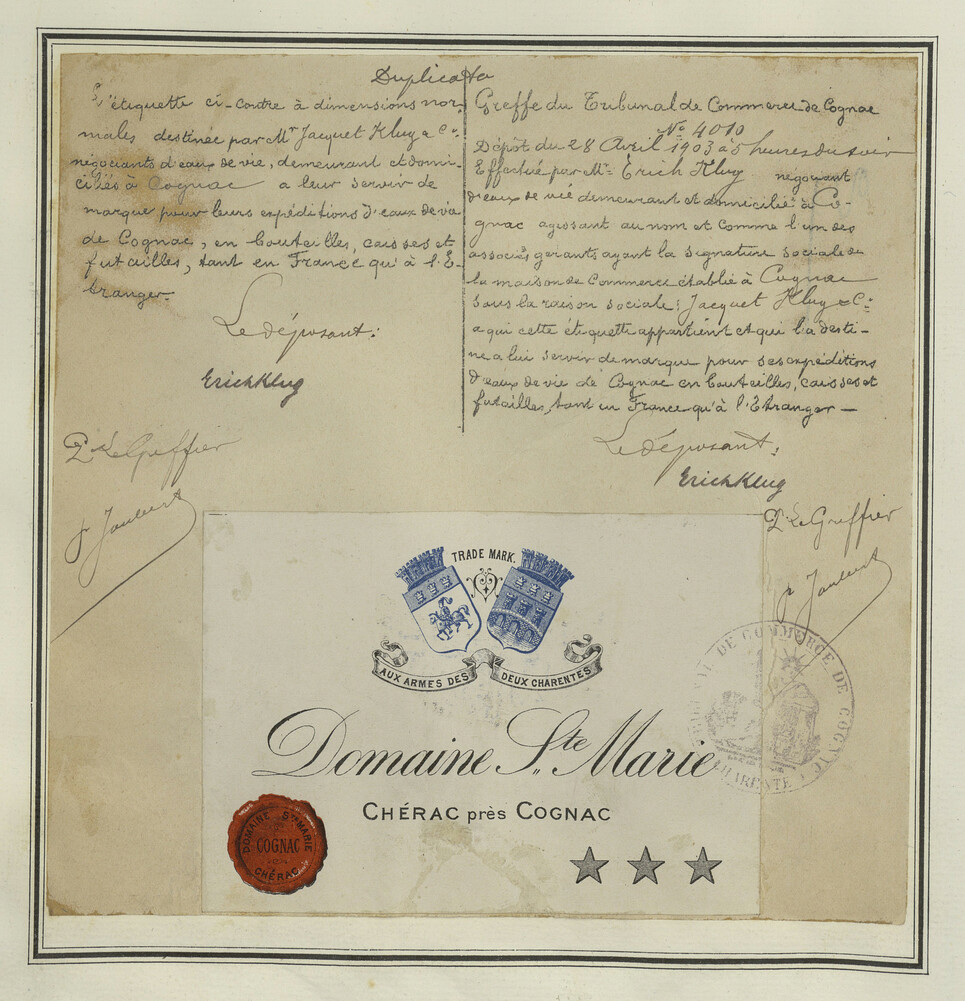 Duplicata
L'étiquette ci-contre à dimensions nor-
males destinée par Mr Jacquet Klug & Cie
négociants d'eaux de vie, demeurant et domi-
ciliés à Cognac a leur servir de
marque pour leurs expéditions d'eaux de vie
de Cognac, en bouteilles, caisses et
futailles, tant en France qu'à l'É-
tranger.
Le déposant:
Erich Klug
Pr Le Greffier
Greffe du Tribunal de Commerce de Cognac
No 4010
Dépôt du 28 Avril 1903 à 5 heures du soir
Effectué par Mr Erich Klug négociant
d'eaux de vie demeurant et domicilié à Co-
gnac agissant au nom et comme l'un des
associés gérants ayant la signature sociale de
la maison de Commerce établie à Cognac
sous la raison sociale: Jacquet Klug & Cie
a qui cette étiquette appartient et qui l'a desti-
né a lui servir de marque pour ses expéditions
d'eaux de vie de Cognac en bouteilles, caisses et
futailles, tant en France qu'à l'Etranger —
Le déposant:
Erich Klug
Pr Le Greffier
TRADE MARK.
AUX ARMES DES DEUX CHARENTES
Domaine Ste Marie
CHÉRAC près COGNAC
DOMAINE STE MARIE
COGNAC
CHÉRAC
TRIBUNAL DE COMMERCE DE COGNAC
CHARENTE